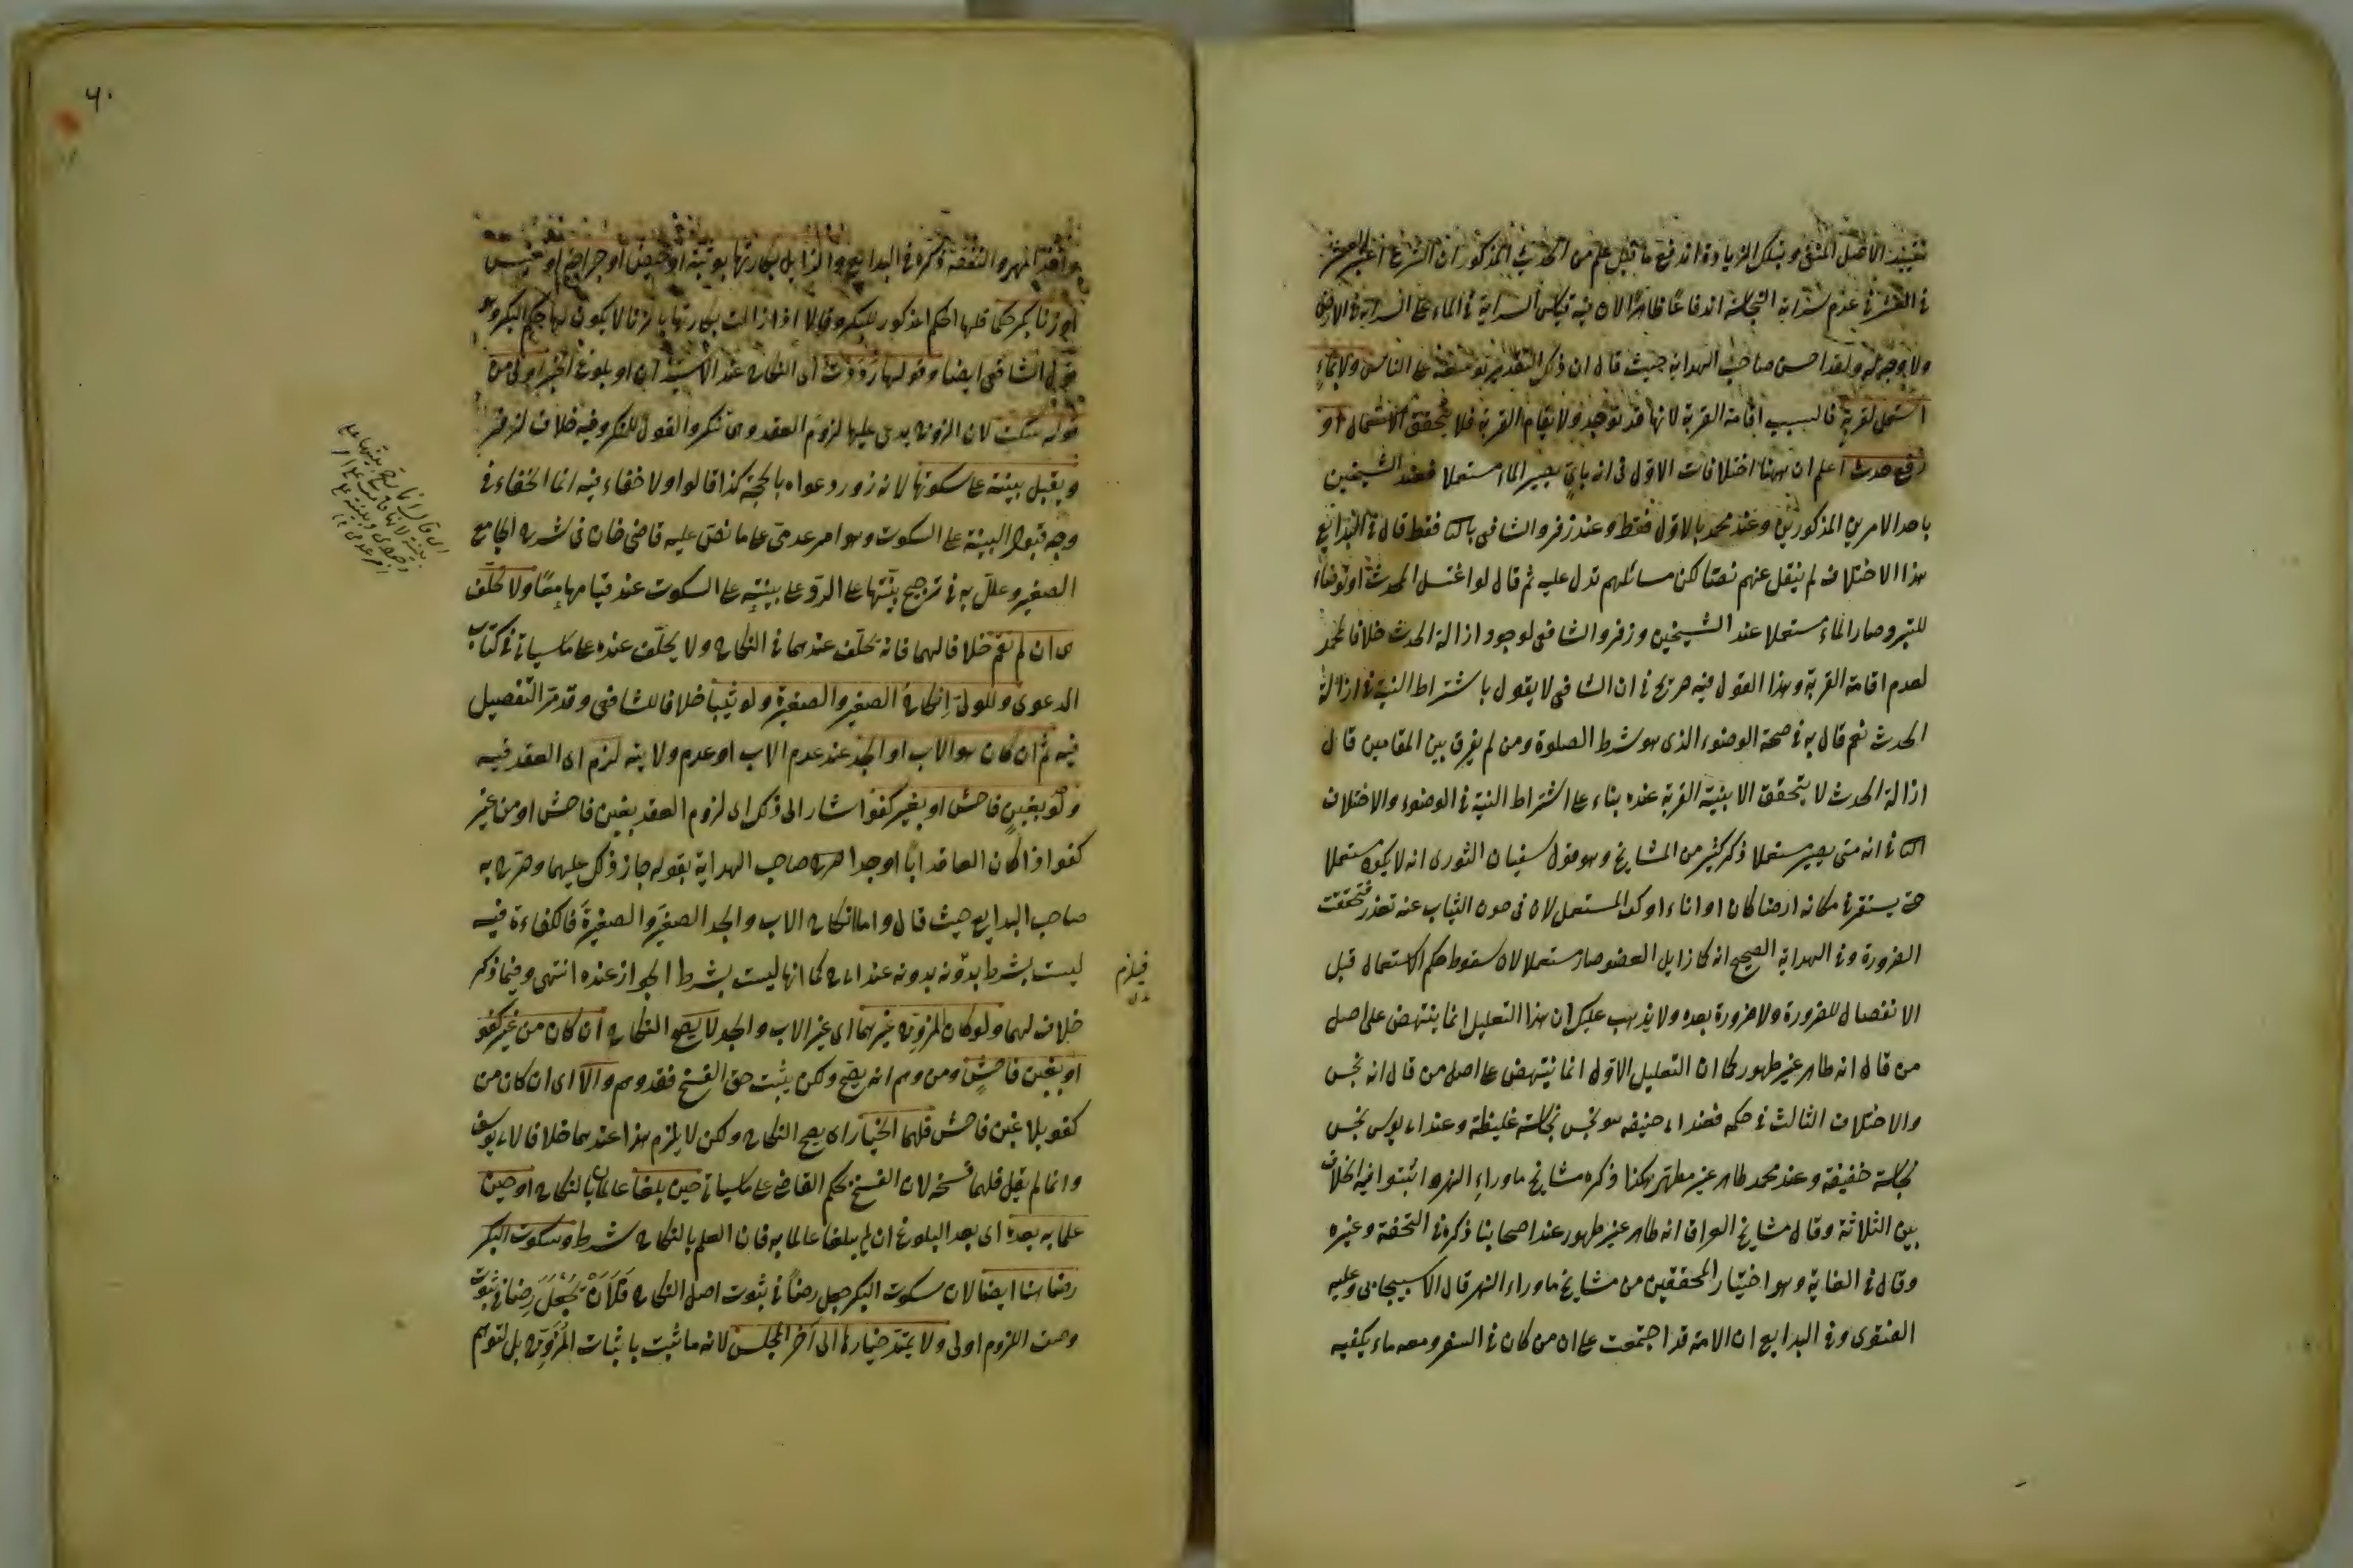 في عدم سراية النجاسة اندفاعا ظاهرا لان فيه قياس السراية في الماء على السراية في الارض
ولا وجه له ولقد احسن صاحب الهداية حيث قال ان ذلك التقدير توسعة على الناس ولا بماء
استعمل لقربة فالسبب اقامة القربة لانها قد توجد ولا تقام القربة فلا يتحقق الاستعمال او
رفع حدث اعلم ان ههنا اختلافات الاول في انه باي يصير الماء مستعملا فعند الشيخين
باحد الامرين المذكورين وعند محمد بالاول فقط وعند زفر والشافعي بالثا فقط قال في البدايع
هذا الاختلاف لم ينقل عنهم نصا لكن مسائلهم تدل عليه ثم قال لو اغتسل المحدث او توضاء
للتبرد صار الماء مستعملا عند الشيخين وزفر والشافعي لوجود ازالة الحدث خلافا لمحمد
لعدم اقامة القربة وهذا القول فيه صريح في ان الشافعي لا يقول باشتراط النية في ازالة
الحدث نعم قال به في صحة الوضوء الذي هو شرط الصلوة ومن لم يفرق بين المقامين قال
ازالة الحدث لا يتحقق الا بنية القربة عنده بناء على اشتراط النية في الوضوء والاختلاف
الثا في انه متى يصير مستعملا ذكر كثير من المشايخ وهو قول سفيان الثوري انه لا يكون مستعملا
حتى يستقر في مكانه ارضا كان او اناء او كف المستعمل لان في صون الثياب عنه تعذر فتحققت
الضرورة وفي الهداية الصحيح انه كما زايل العضو صار مستعملا لان سقوط حكم الاستعمال قبل
الانفصال للضرورة ولا ضرورة بعده ولا يذهب عليك ان هذا التعليل انما ينتهض على اصل
من قال انه طاهر غير طهور كما ان التعليل الاول انما ينتهض على اصل من قال انه نجس
والاختلاف الثالث في حكمه فعند ابي حنيفه هو نجس نجاسة غليظة وعند ابي يوسف نجس
نجاسة خفيفة وعند محمد طاهر غير مطهر هكذا ذكره مشايخ ماوراء النهر واثبتوا فيه الخلاف
بين الثلاثة وقال مشايخ العراق انه طاهر غير طهور عند اصحابنا ذكره في التحفة وغيره
وقال في الغاية وهو اختيار المحققين من مشايخ ماوراء النهر قال الاسبيجابي وعليه
الفتوى وفي البدايع ان الامة قد اجتمعت على ان من كان في السفر ومعه ماء يكفيه
٦٠
قول الشافعي ايضا وقولها رددت اي النكاح عند الاستيذان او بلوغ الخبر اولى من
قوله سكت لان الزوج يدعي عليها لزوم العقد وهي تنكر والقول للمنكر وفيه خلاف لزفر
ويقبل بينته على سكوتها لانه نور دعواه بالحجة كذا قالوا ولا خفاء فيه انما الخفاء في
وجه قبول البينة على السكوت وهو امر عدمي على ما نص عليه قاضي خان في شرح الجامع
الصغير وعلل به في ترجيح بينتها على الرد على بينته على السكوت عند قيامهما معا ولا تحلف
هي ان لم تقم خلافا لهما فانه تحلف عندهما في النكاح ولا يحلف عنده على ما سياتي في كتاب
الدعوى وللولي انكاح الصغير والصغيرة ولو ثيبا خلافا للشافعي وقد مر التفصيل
فيه ثم ان كان هو الاب او الجد عند عدم الاب او عدم ولايته لزم اي العقد فيه
ولو بغبن فاحش او بغير كفو اشار الى ذلك اي لزوم العقد بغبن فاحش او من غير
كفو اذا كان العاقد ابا او جدا صرح صاحب الهداية بقوله جاز ذلك عليهما وصرح به
صاحب البدايع حيث قال واما انكاح الاب والجد الصغير والصغيرة فالكفاءة فيه
ليست بشرط بدونه عند ابي ح كما انها ليست بشرط الجواز عنده انتهى وفيما ذكر
فيلزم
خلاف لهما ولو كان المزوج غيرهما اي غير الاب والجد لا يصح النكاح ان كان من غير كفو
او بغبن فاحش ومن وهم انه يصح ولكن يثبت حق الفسخ فقد وهم والا اي ان كان من
كفو بلا غبن فاحش فلهما الخيار اي يصح النكاح ولكن لا يلزم هذا عندهما خلافا لابي يوسف
وانما لم يقل فلهما فسخه لان الفسخ بحكم القاضي على ما سياتي حين بلغا عالمين بالنكاح او حين
علما به بعده اي بعد البلوغ ان لم يبلغا عالما به فان العلم بالنكاح شرط وسكوت البكر
رضا هنا ايضا لان سكوت البكر جعل رضا في ثبوت اصل النكاح فلان يجعل رضا في ثبوت
وصف اللزوم اولى ولا يمتد خيارها الى آخر المجلس لانه ما ثبت باثبات المزوج بل لتوهم